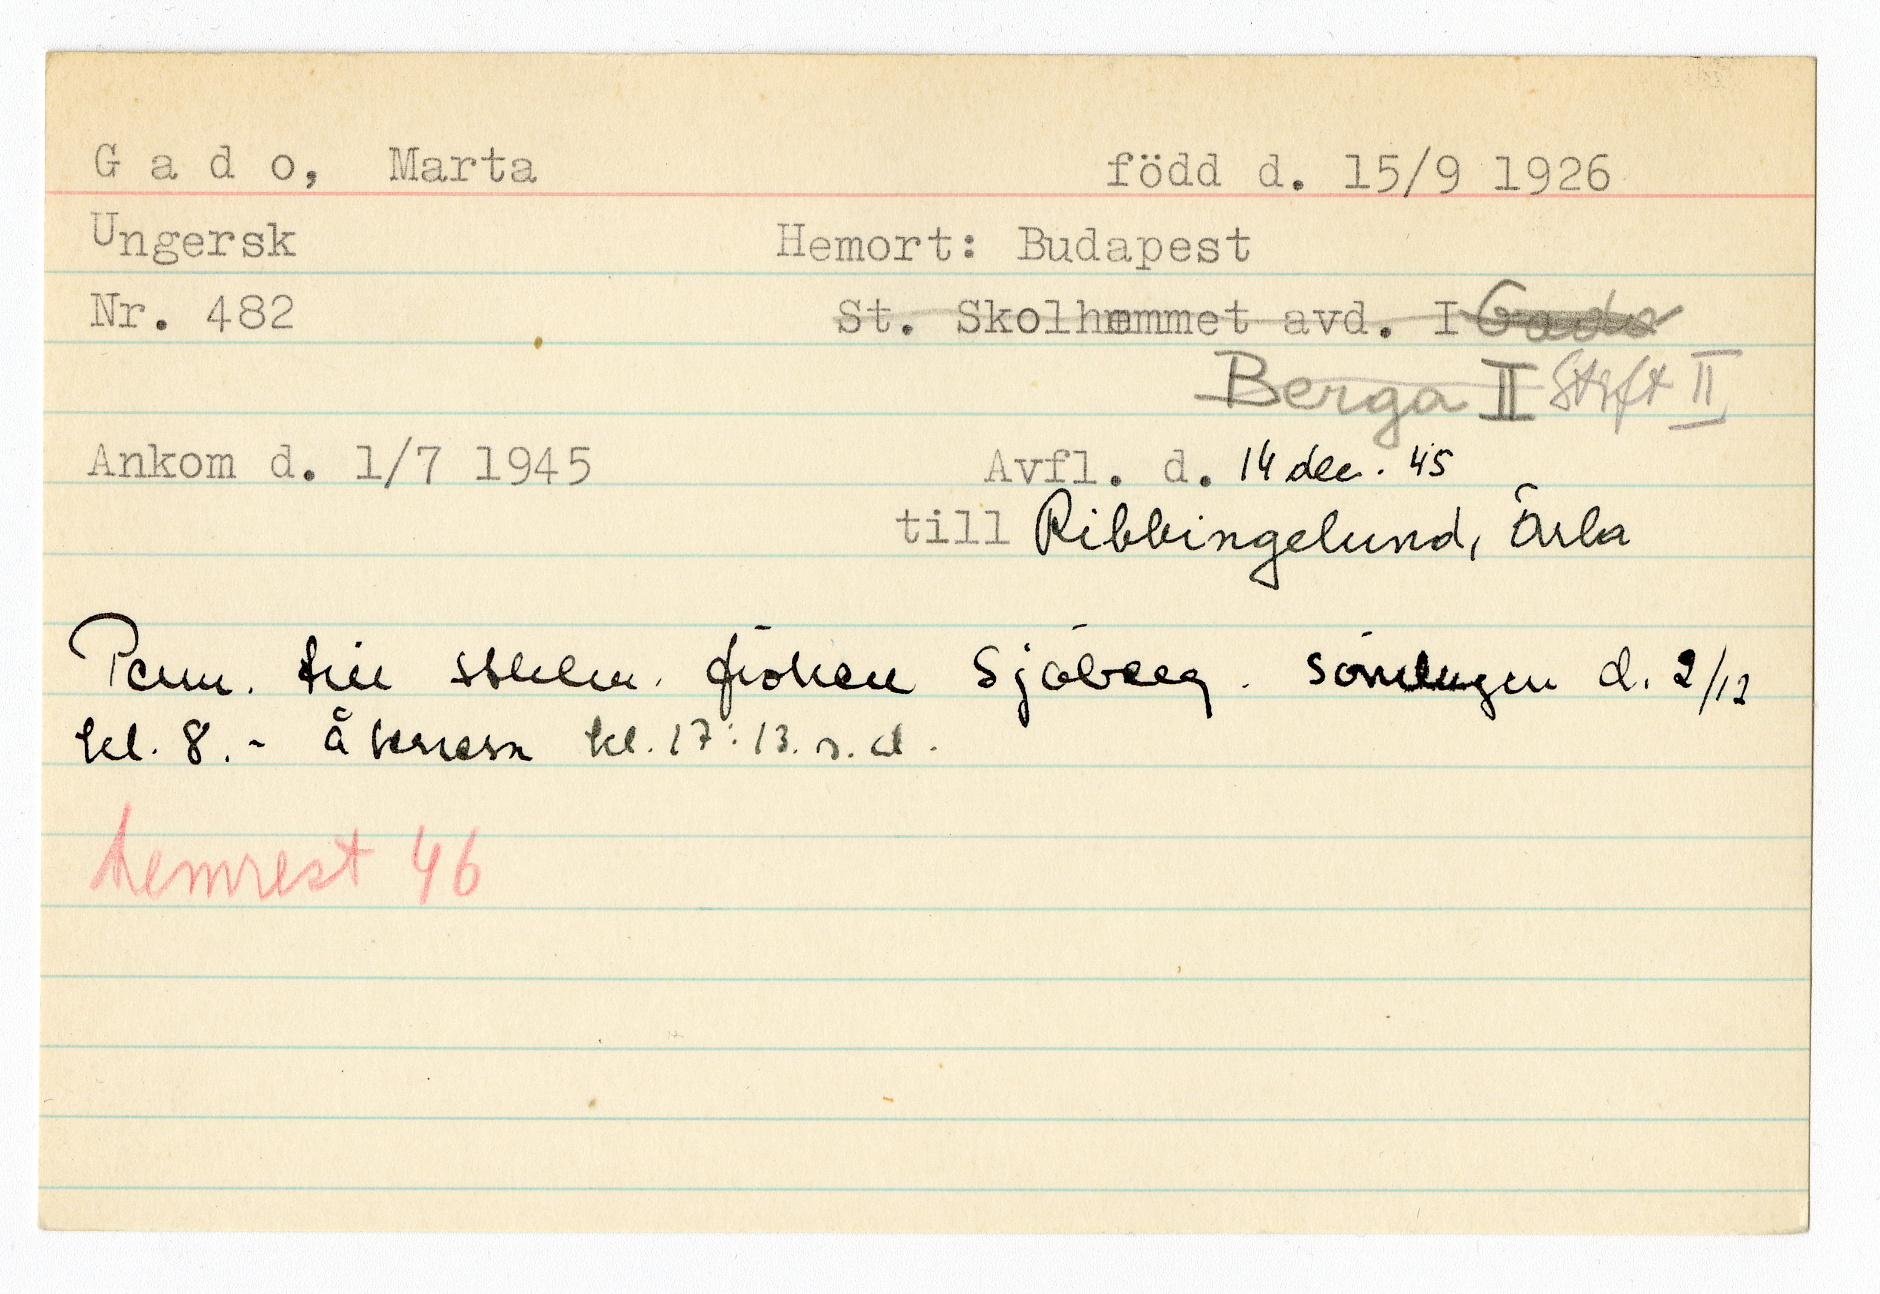 G a d o, Marta född d. 15/9 1926
Ungersk Hemort: Budapest
Nr. 482 St. Skolhemmet avd. I Gado
Berga II Stift II
Ankom d. 1/7 1945 Avfl. d. 14 dec. 45
till Ribbingelund, Ärla
Perm. till Sthlm. fröken Sjöberg. Söndagen d. 2/12
kl. 8.- Återresa kl. 17:13. s.d.
hemrest 46